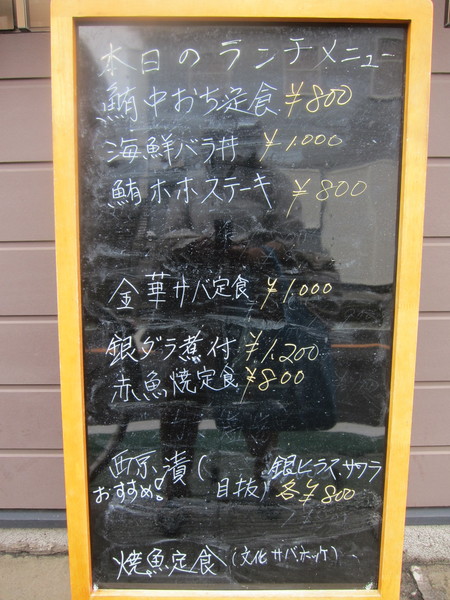 本日のランチメニュー
鮪中おち定食 ¥800
海鮮バラ丼 ¥1.000
鮪ホホステーキ ¥800
金華サバ定食 ¥1.000
銀ダラ煮付 ¥1.200
赤魚焼定食 ¥800
西京漬( 銀ヒラス、サワラ
おすすめ! 目抜) 各¥800
焼魚定食(文化サバ、ホッケ)